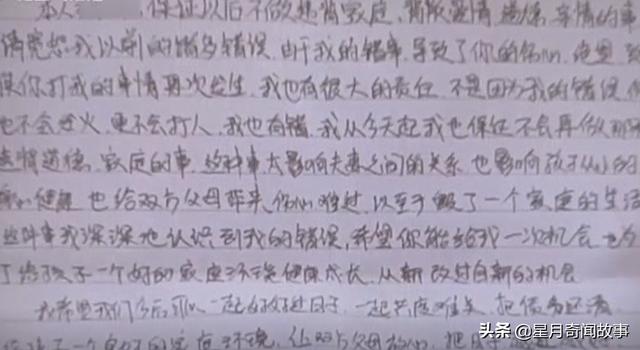 本人 保证以后不做违背家庭、背叛爱情 道德 亲情的事
请宽恕我以前的诸多错误 由于我的错事 导致了你的伤心 绝望
你打我的事情再次发生 我也有很大的责任 不是因为我的错误
也不会过火 更不会打人 我也有错 我从今天起我也保证不会再做
道德 家庭的事 这种事太影响夫妻之间的关系 也影响孩子从小的
健康 也给双方父母带来伤心难过 以至于毁了一个家庭的生活
这件事我深深地认识到我的错误,希望你能给我一次机会
了给孩子一个好的家庭环境健康成长 从新改过自新的机会
我希望我们今后可以一起好好过日子 一起共度难关 把债务还清
一个良好的家庭环境 让双方父母放心
头条 @星月奇闻故事